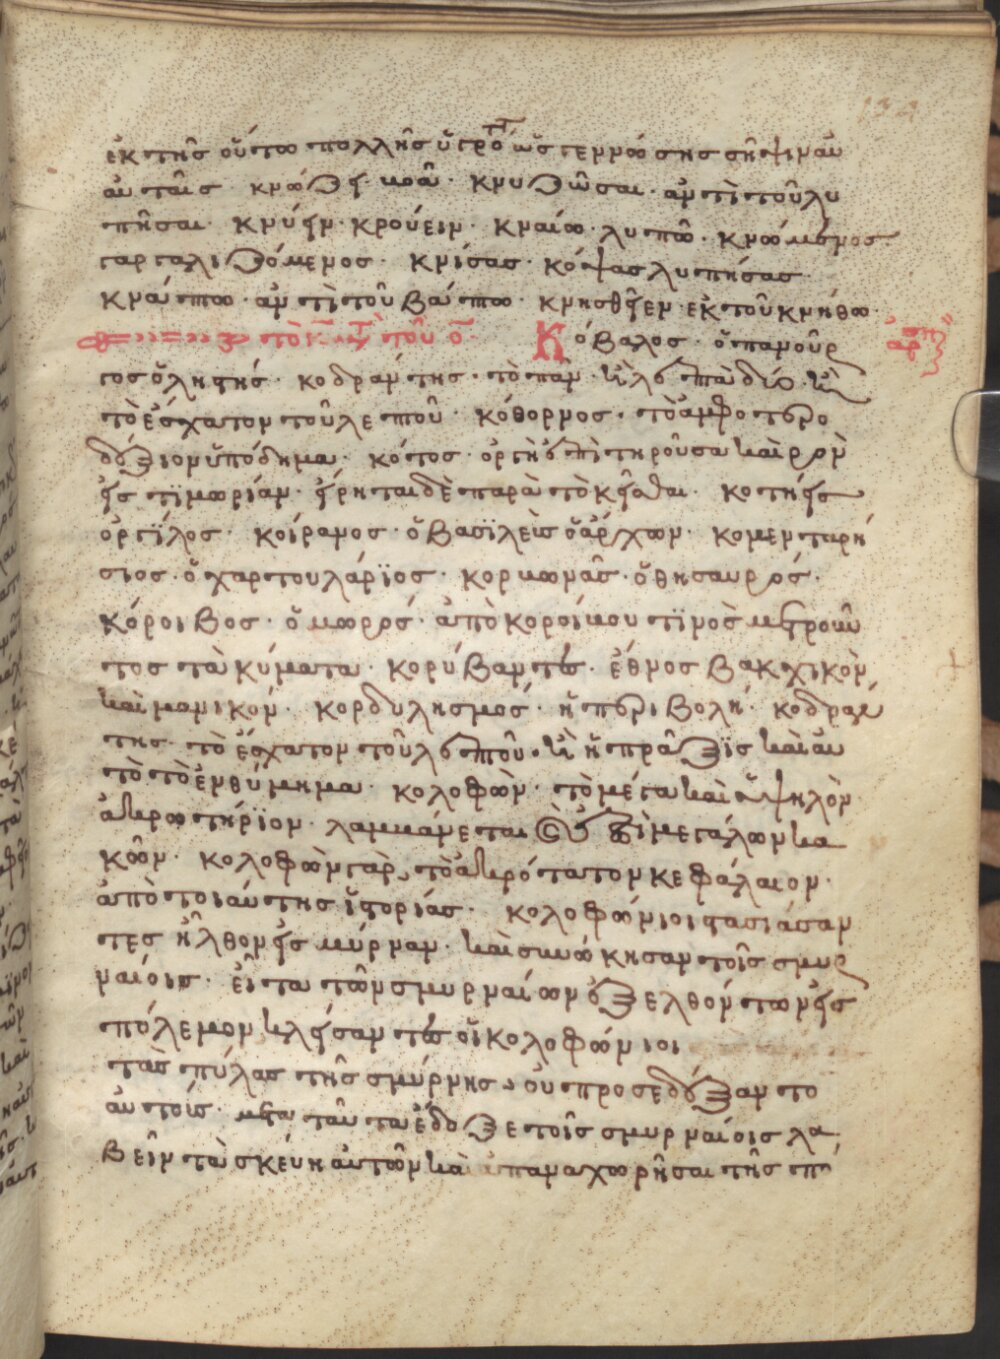 ἐκ τῆς οὕτω πολλῆς ὑγρότητος γεννώσης σῆψιν ἀν
αὐταῖς· κνώζει· κοᾶ· κνυζῶσαι· ἀντὶ τοῦ λυ
πῆσαι· κνύειν· κρούειν· κναίω· λυπῶ· κνώμενος
γαργαλιζόμενος· κνίσας· κόψας λυπήσας·
κνάπτω· ἀντὶ τοῦ βάπτω· κνησθείεν· ἐκ τοῦ κνήθω·
τὸ κ̅ μετὰ τοῦ ο̅· Κόβαλος· ὁ πανοῦρ
γος ὁ ληστής· κοδράντης· τὸ πᾶν· καὶ
τὸ ἔσχατον τοῦ λεπτοῦ· κόθορνος· τὸ ἀμφοτερο
δέξιον ὑπόδημα· κότος· ὀργὴ ἐπιτηροῦσα καιρὸν
εἰς τιμωρίαν· εἴρηται δὲ παρὰ τὸ κεῖσθαι· κοτήεις
ὀργίλος· κοίρανος· ὁ βασιλεὺς ὁ ἄρχων· κομενταρή
σιος· ὁ χαρτουλάριος· κορμωνᾶς· ὁ θησαυρός·
κόροιβος· ὁ μωρός· ἀπὸ κοροίμου τινὸς μετροῦν
τος τὰ κύματα· κορύβαντες· ἔθνος βακχικὸν
καὶ μανικόν· κορδυλησμός· ἡ περιβολή· κοδράν
της· τὸ ἔσχατον τοῦ λεπτοῦ· καὶ ἡ πρᾶξις καὶ αὐ
τὸ τὸ ἐνθύμημα· κολοφών· τὸ μέγα καὶ ὑψηλὸν
ἀκρωτήριον· λαμβάνεται ἐπὶ μεγάλων κα
κῶν· κολοφὼν γὰρ τὸ ἀκρότατον κεφάλαιον·
ἀπὸ τοιαύτης ἱστορίας· κολοφώνιοι στασιάσαν
τες ἦλθον εἰς μύρναν· καὶ συνώκησαν τοῖς σμυρ
ναίοις· εἶτα τῶν σμυρναίων ἐξελθόντων εἰς
πόλεμον κλείσαντες οἱ κολοφώνιοι
τὰς πύλας τῆς σμύρνης, οὐ προσεδέξαντο
αὐτοίς· μετὰ ταῦτα ἔδοξε τοῖς σμυρναίοις λα
βεῖν τὰ σκεύη αὐτῶν καὶ ἀπαναχωρῆσαι τῆς πό